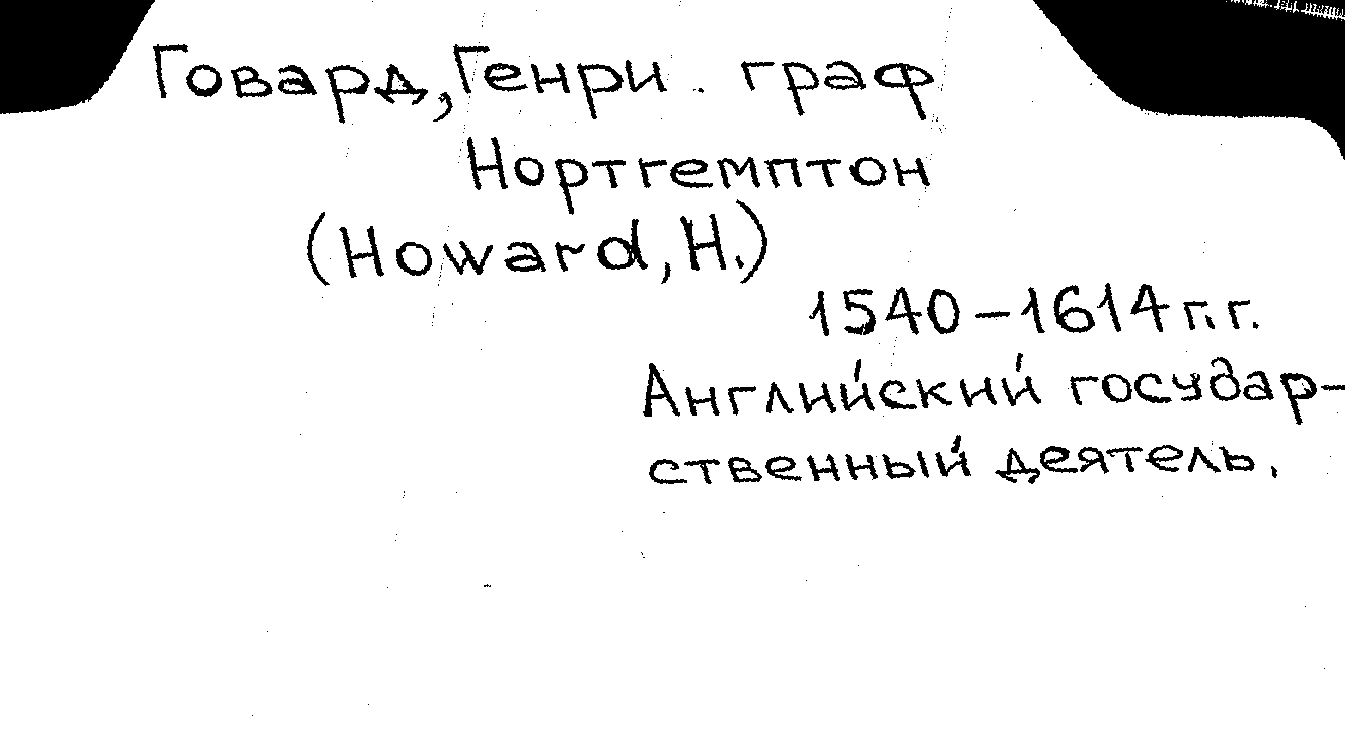 Говард, Генри. граф
Нортгемптон
(Howard, H.)
1540-1614 г.г.
Английский государ-
ственный деятель.